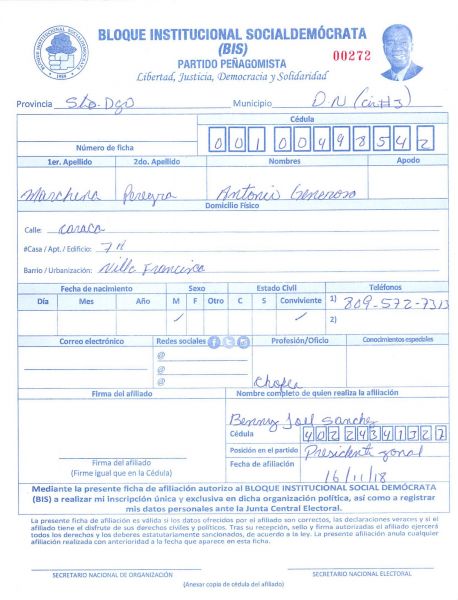 BLOQUE INSTITUCIONAL SOCIALDEMÓCRATA
(BIS)
PARTIDO PEÑAGOMISTA
00272
Libertad, Justicia, Democracia y Solidaridad
Provincia Sto. Dgo Municipio D.N (
Cédula
Número de ficha 0 0 1 0 0 4 9 8 5 4 2
1er. Apellido 2do. Apellido Nombres Apodo
Marchena Antonio Generoso
Domicilio Físico
Calle: caraca
#Casa / Apt. / Edificio: 7
Barrio / Urbanización: Villa Francisca
Fecha de nacimiento Sexo Estado Civil Teléfonos
Día Mes Año M F Otro C S Conviviente 1) 809-572-7313
2)
Correo electrónico Redes sociales Profesión/Oficio Conocimientos especiales
@
@
@ Chofer
Firma del afiliado Nombre completo de quien realiza la afiliación
Benny Joel Sanchez
Cédula 402 2434132 7
Posición en el partido Presidente zonal
Firma del afiliado
(Firme igual que en la Cédula)
Fecha de afiliación 16/11/18
Mediante la presente ficha de afiliación autorizo al BLOQUE INSTITUCIONAL SOCIAL DEMÓCRATA
(BIS) a realizar mi inscripción única y exclusiva en dicha organización política, así como a registrar
mis datos personales ante la Junta Central Electoral.
La presente ficha de afiliación es válida si los datos ofrecidos por el afiliado son correctos, las declaraciones veraces y si el
afiliado tiene el disfrute de sus derechos civiles y políticos. Tras su recepción, sello y firma autorizadas el afiliado ejercerá
todos los derechos y los deberes estatutariamente sancionados, de acuerdo a la ley. La presente afiliación anula cualquier
afiliación realizada con anterioridad a la fecha que aparece en esta ficha.
SECRETARIO NACIONAL DE ORGANIZACIÓN SECRETARIO NACIONAL ELECTORAL
(Anexar copia de cédula del afiliado)